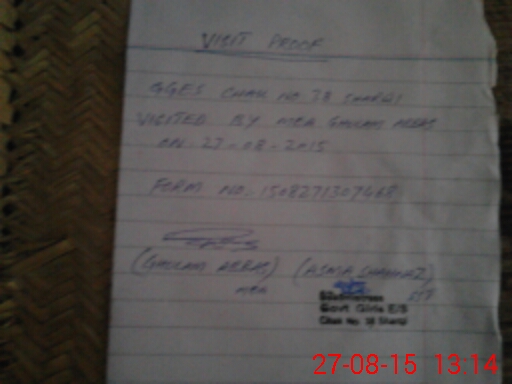 VISIT PROOF
GGES CHAK NO 38 SHARQI
VISITED BY MEA GHULAM ABBAS
ON 27-08-2015
FORM NO. 1508271307468
(GHULAM ABBAS) (ASMA SHAHNAZ)
MEA EST
Govt. Girls E/S
Chak No. 38 Sharqi
27-08-15 13:14